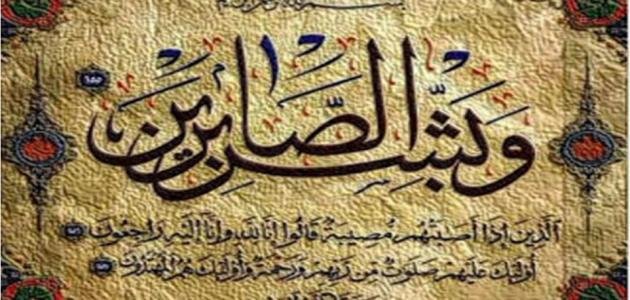 وَبَشِّرِ الصَّابِرِينَ ١٥٥
الَّذِينَ إِذَا أَصَابَتْهُمْ مُصِيبَةٌ قَالُوا إِنَّا لِلَّهِ وَإِنَّا إِلَيْهِ رَاجِعُونَ
أُولَٰئِكَ عَلَيْهِمْ صَلَوَاتٌ مِنْ رَبِّهِمْ وَرَحْمَةٌ وَأُولَٰئِكَ هُمُ الْمُهْتَدُونَ